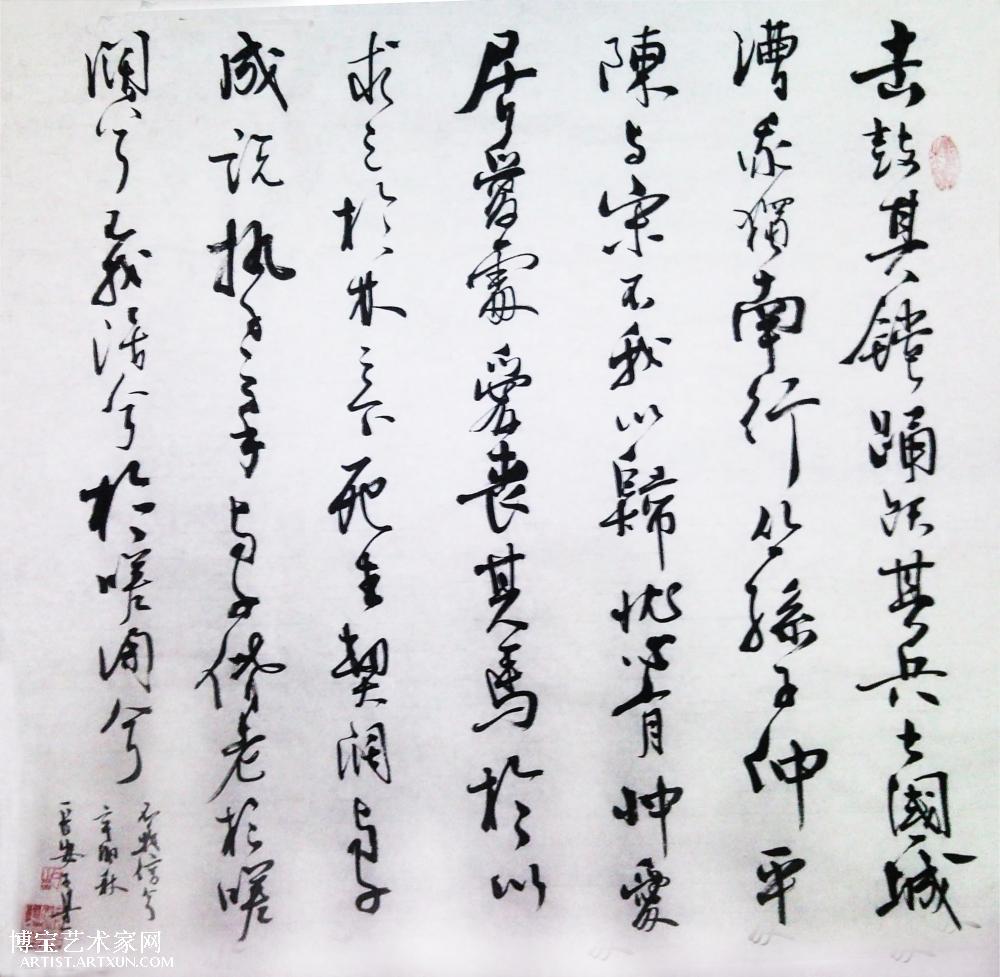 击鼓其鏜踊跃其兵土國城
漕我獨南行从孫子仲平
陳与宋不我以歸忧心有忡爰
居爰處爰喪其馬於以
求之於林之下死生契闊与子
成説執子之手与子偕老於嗟
闊兮不我活兮於嗟洵兮
不我信兮
辛卯秋
晋安
博宝艺术家网
ARTIST.ARTXUN.COM